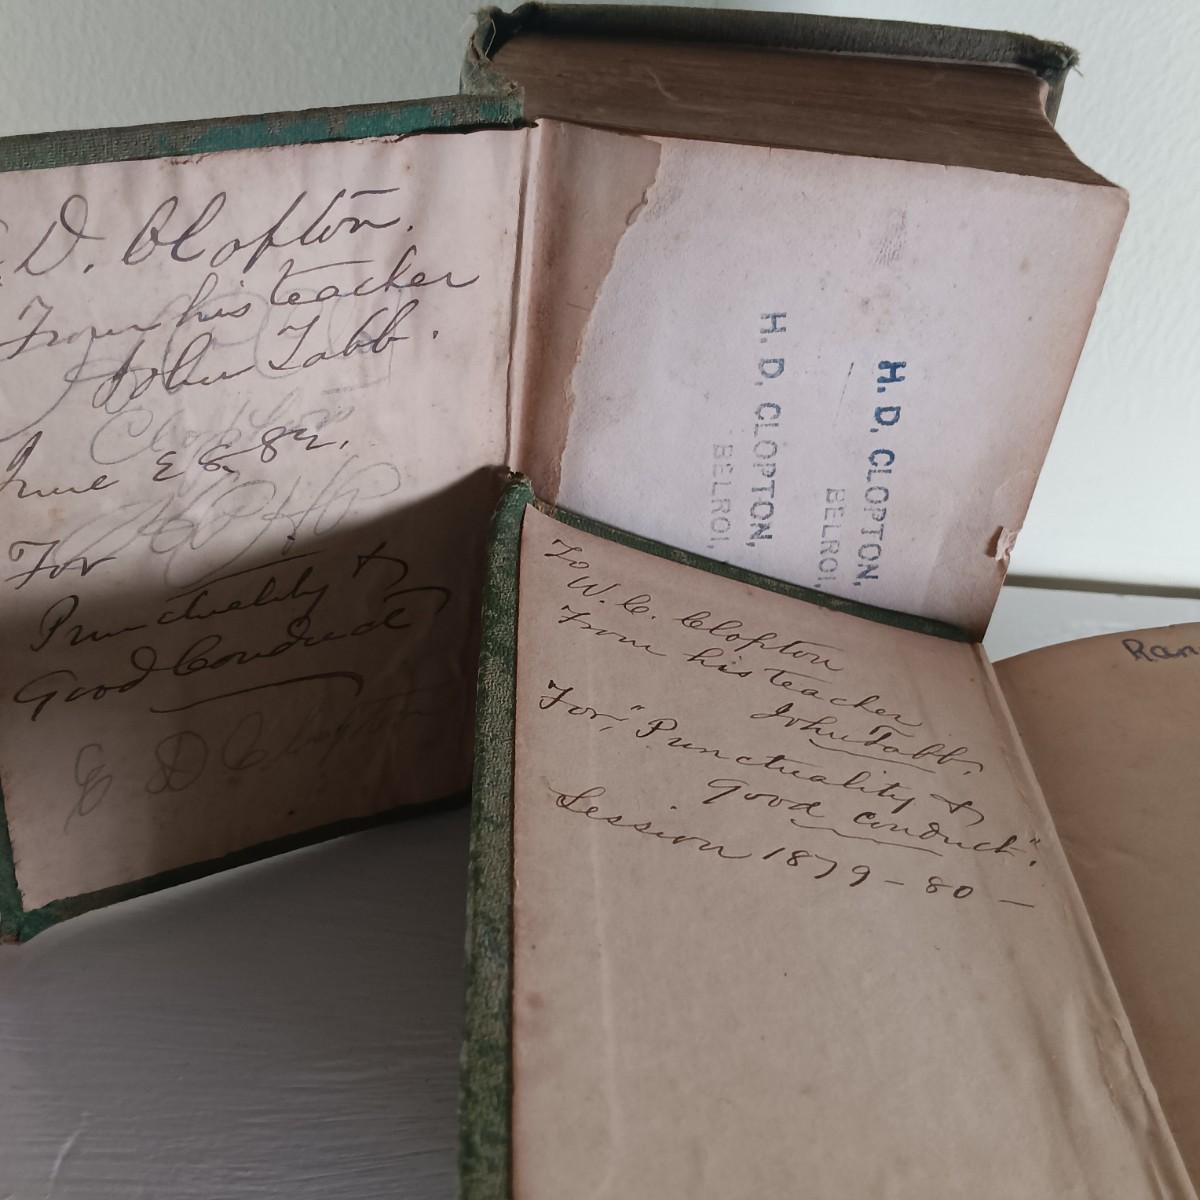 D. Clopton.
From his teacher
John Tabb.
Clopton
June
For
Punctuality &
Good Conduct
E D Clopton
H. D. CLOPTON,
BELROI,
H. D. CLOPTON,
BELROI,
To
W. C. Clopton
From his teacher
John Tabb.
For, "Punctuality &
good conduct".
Session 1879 - 80 -
Ran